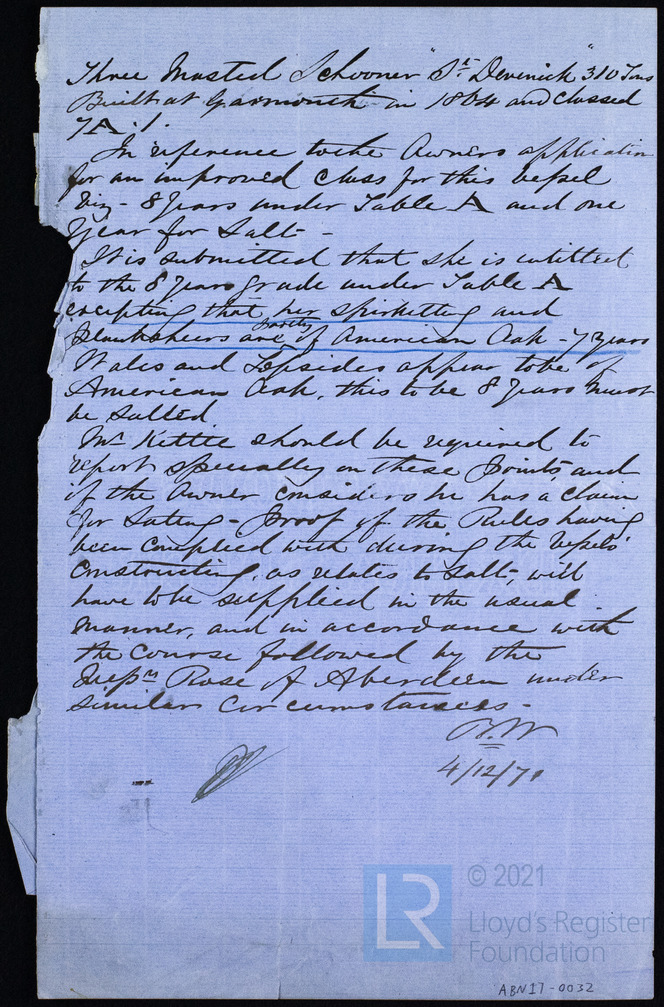 Three Masted Schooner "St Devenick" 310 Tons
Built at Garmouth in 1864 and classed
7A.1.
In reference to the Owners application
for an improved class for this vessel
viz - 8 Years under Table A and one
Year for Salt -
It is submitted that she is intitled
to the 8 Years grade under Table A
excepting that her spirketting and
Planksheers are partly of American Oak - 7 Years
Wales and Topsides appear to be of
American Oak, this to be 8 Years must
be salted
Mr Kettie should be required to
report specially on these points, and
if the Owner considers he has a claim
for Salting - Proof of the Rules having
been complied with during the Vessels'
Constructing, as relates to Salt, will
have to be supplied in the usual
manner, and in accordance with
the course followed by the
Rose of Aberdeen under
similar circumstances -
B.W
4/12/71
LR
© 2021
Lloyd's Register
Foundation
ABN17-0032